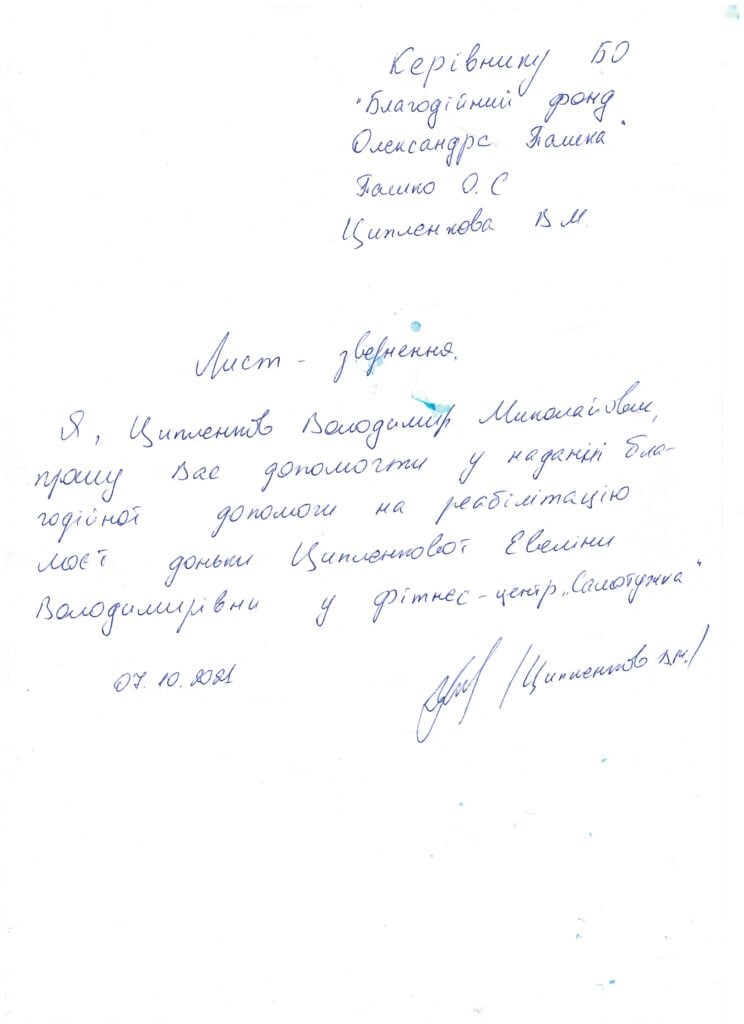 Керівнику БО
"Благодійний фонд
Олександра Пашка"
Пашко О.С
Ципленкова В М.
Лист - звернення.
Я, Ципленков Володимир Миколайович,
прошу Вас допомогти у наданні бла-
годійної допомоги на реабілітацію
моєї доньки Ципленкової Евеліни
Володимирівни у фітнес-центр „Самотужка"
07.10.2021
/Ципленков В.М./